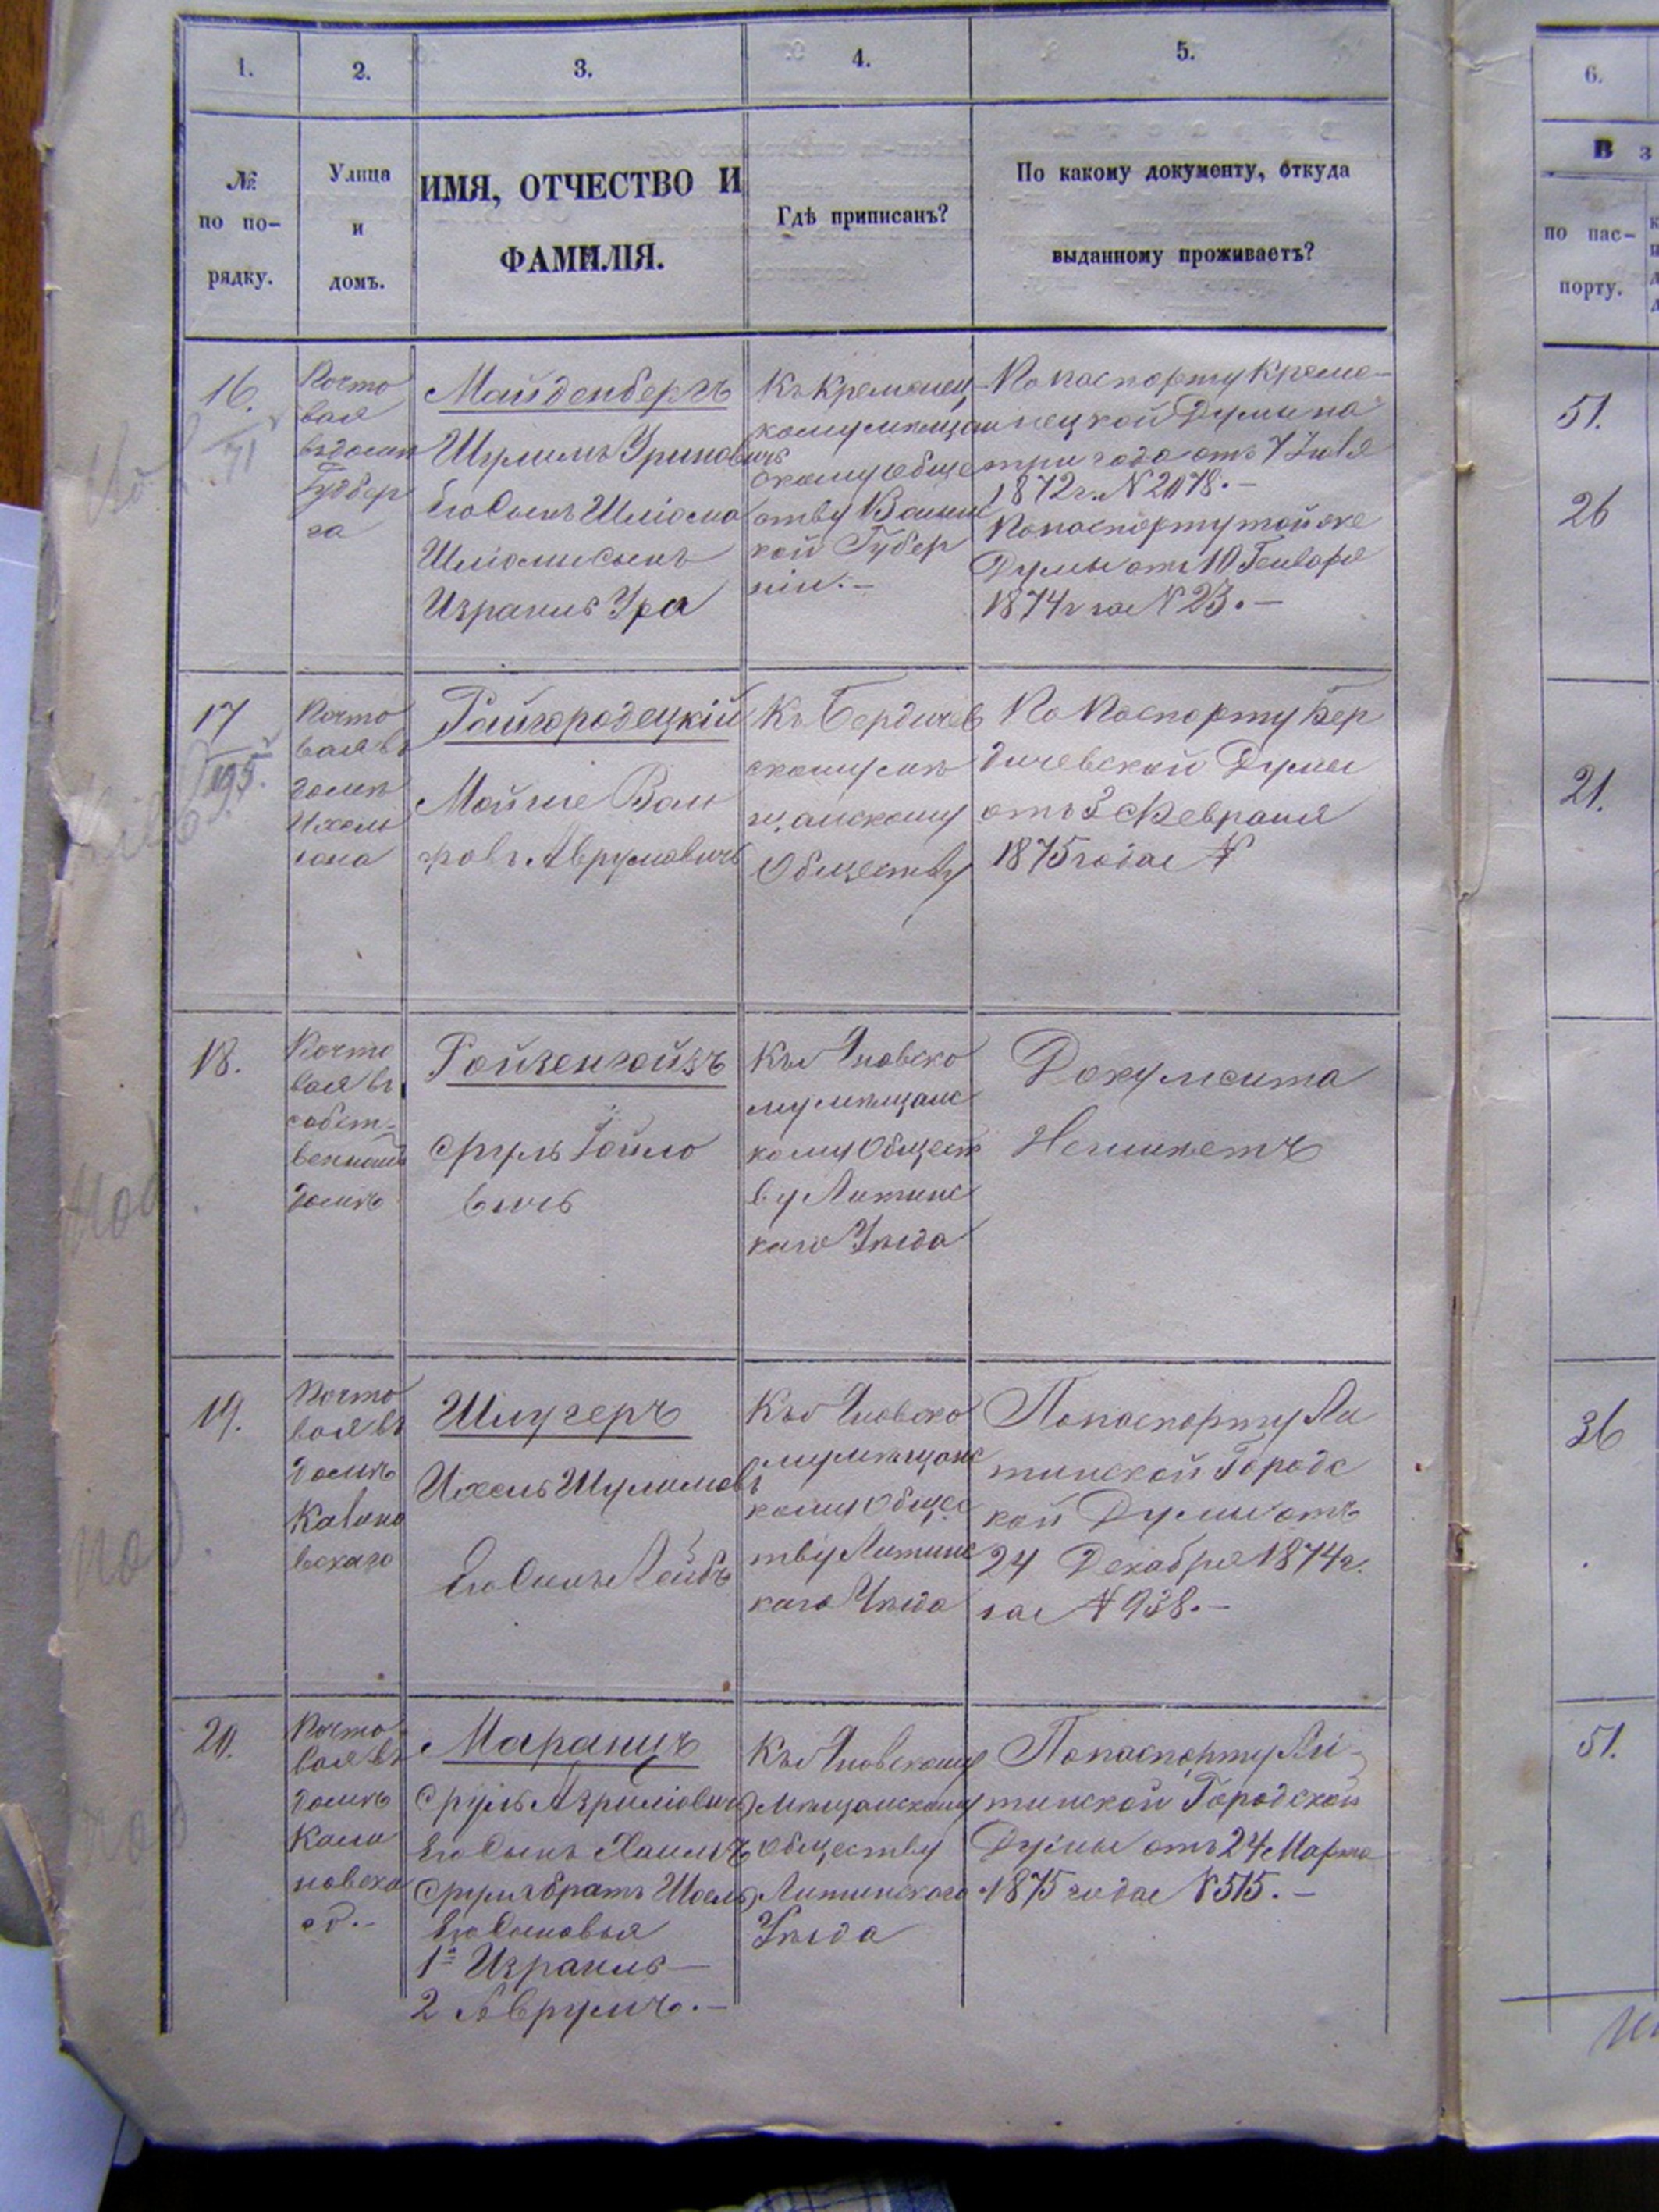 1.
2.
3.
4.
5.
6.
№
по по-
рядку.
Улица
и
домъ.
ИМЯ, ОТЧЕСТВО И
ФАМИЛІЯ.
Гдѣ приписанъ?
По какому документу, откуда
выданному проживаетъ?
В з
по пас-
порту.
16.
71
Почто
вая
въ домѣ
Гудбер
га
Майденбергъ
Шулимъ Уринович
Его Сынъ Шліома
Шліоми сынъ
Израиль Ура
Къ Кременец
кому мѣщан
скому обще
ству Волынс
кой Губер
ніи. —
По паспорту Креме-
нецкой Думы на
три года отъ 7 Іюля
1872 г. № 2078. —
По паспорту той же
Думы отъ 10 Генваря
1874 г за № 23. —
51.
26
17
195.
Почто
вая въ
домѣ
Ихель
зона
Райгородецкій
Мойше Воль
фовъ Аврумовичъ
Къ Бердичев
скому мѣ
щанскому
Обществу
По Паспорту Бер
дичевской Думы
отъ 3 Февраля
1875 года №
21.
18.
Почто
вая въ
собст-
венномъ
домѣ
Ройзенгойзъ
Сруль Іойло
вичъ
Къ Яновско
му мѣщанс
кому Общест
ву Литинс
каго Уѣзда
Документа
Неимѣетъ
19.
Почто
вая въ
домѣ
Калино
вскаго
Шлугеръ
Ихель Шулимовъ
Его Сынъ Лейбъ
Къ Яновско
му мѣщанс
кому Общес
тву Литинс
каго Уѣзда
По паспорту Ли
тинской Городс
кой Думы отъ
24 Декабря 1874 г.
за № 938. —
36
20.
Почто
вая въ
домѣ
Кали
новско
го. —
Маранцъ
Сруль Азриліовичъ
Его Сынъ Хаимъ
Сруля братъ Шоель
Его Сыновья
1й Израиль —
2 Аврумъ. —
Къ Яновскому
Мѣщанскому
Обществу
Литинского
Уѣзда
По паспорту Ли-
тинской Городской
Думы отъ 24 Марта
1875 года № 515. —
51.